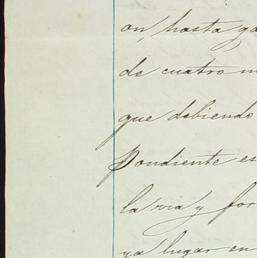 on, hasta
de cuatro
que debiendo
pondiente es
la via y for
ya lugar en